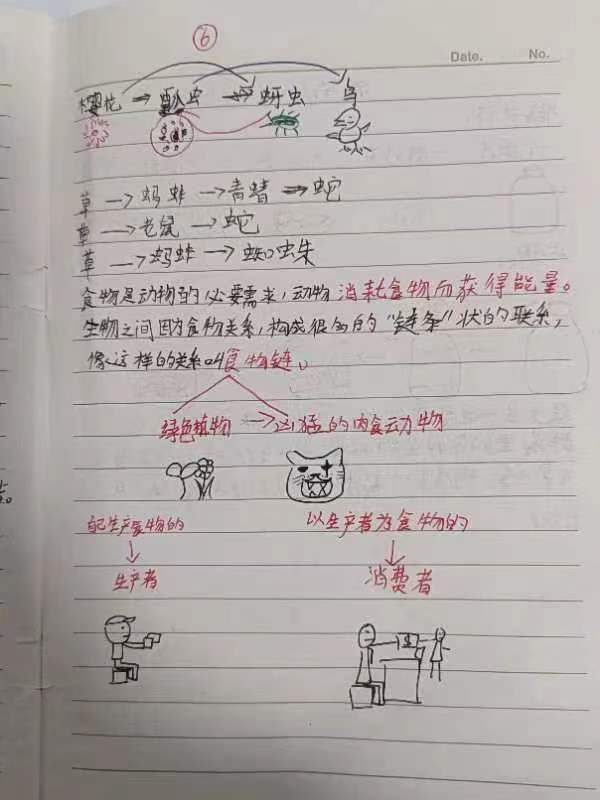 ⑥
Date. No.
樱花 → 瓢虫 → 蚜虫 鸟
草 → 蚂蚱 → 青蜻 → 蛇
草 → 老鼠 → 蛇
草 → 蚂蚱 → 蜘虫朱
食物是动物的必要需求,动物消耗食物而获得能量。
生物之间因食物关系,构成很多的“链条”状的联系,
像这样的关系叫食物链。
绿色植物 → 凶猛的肉食动物
自己生产食物的 以生产者为食物的
生产者 消费者